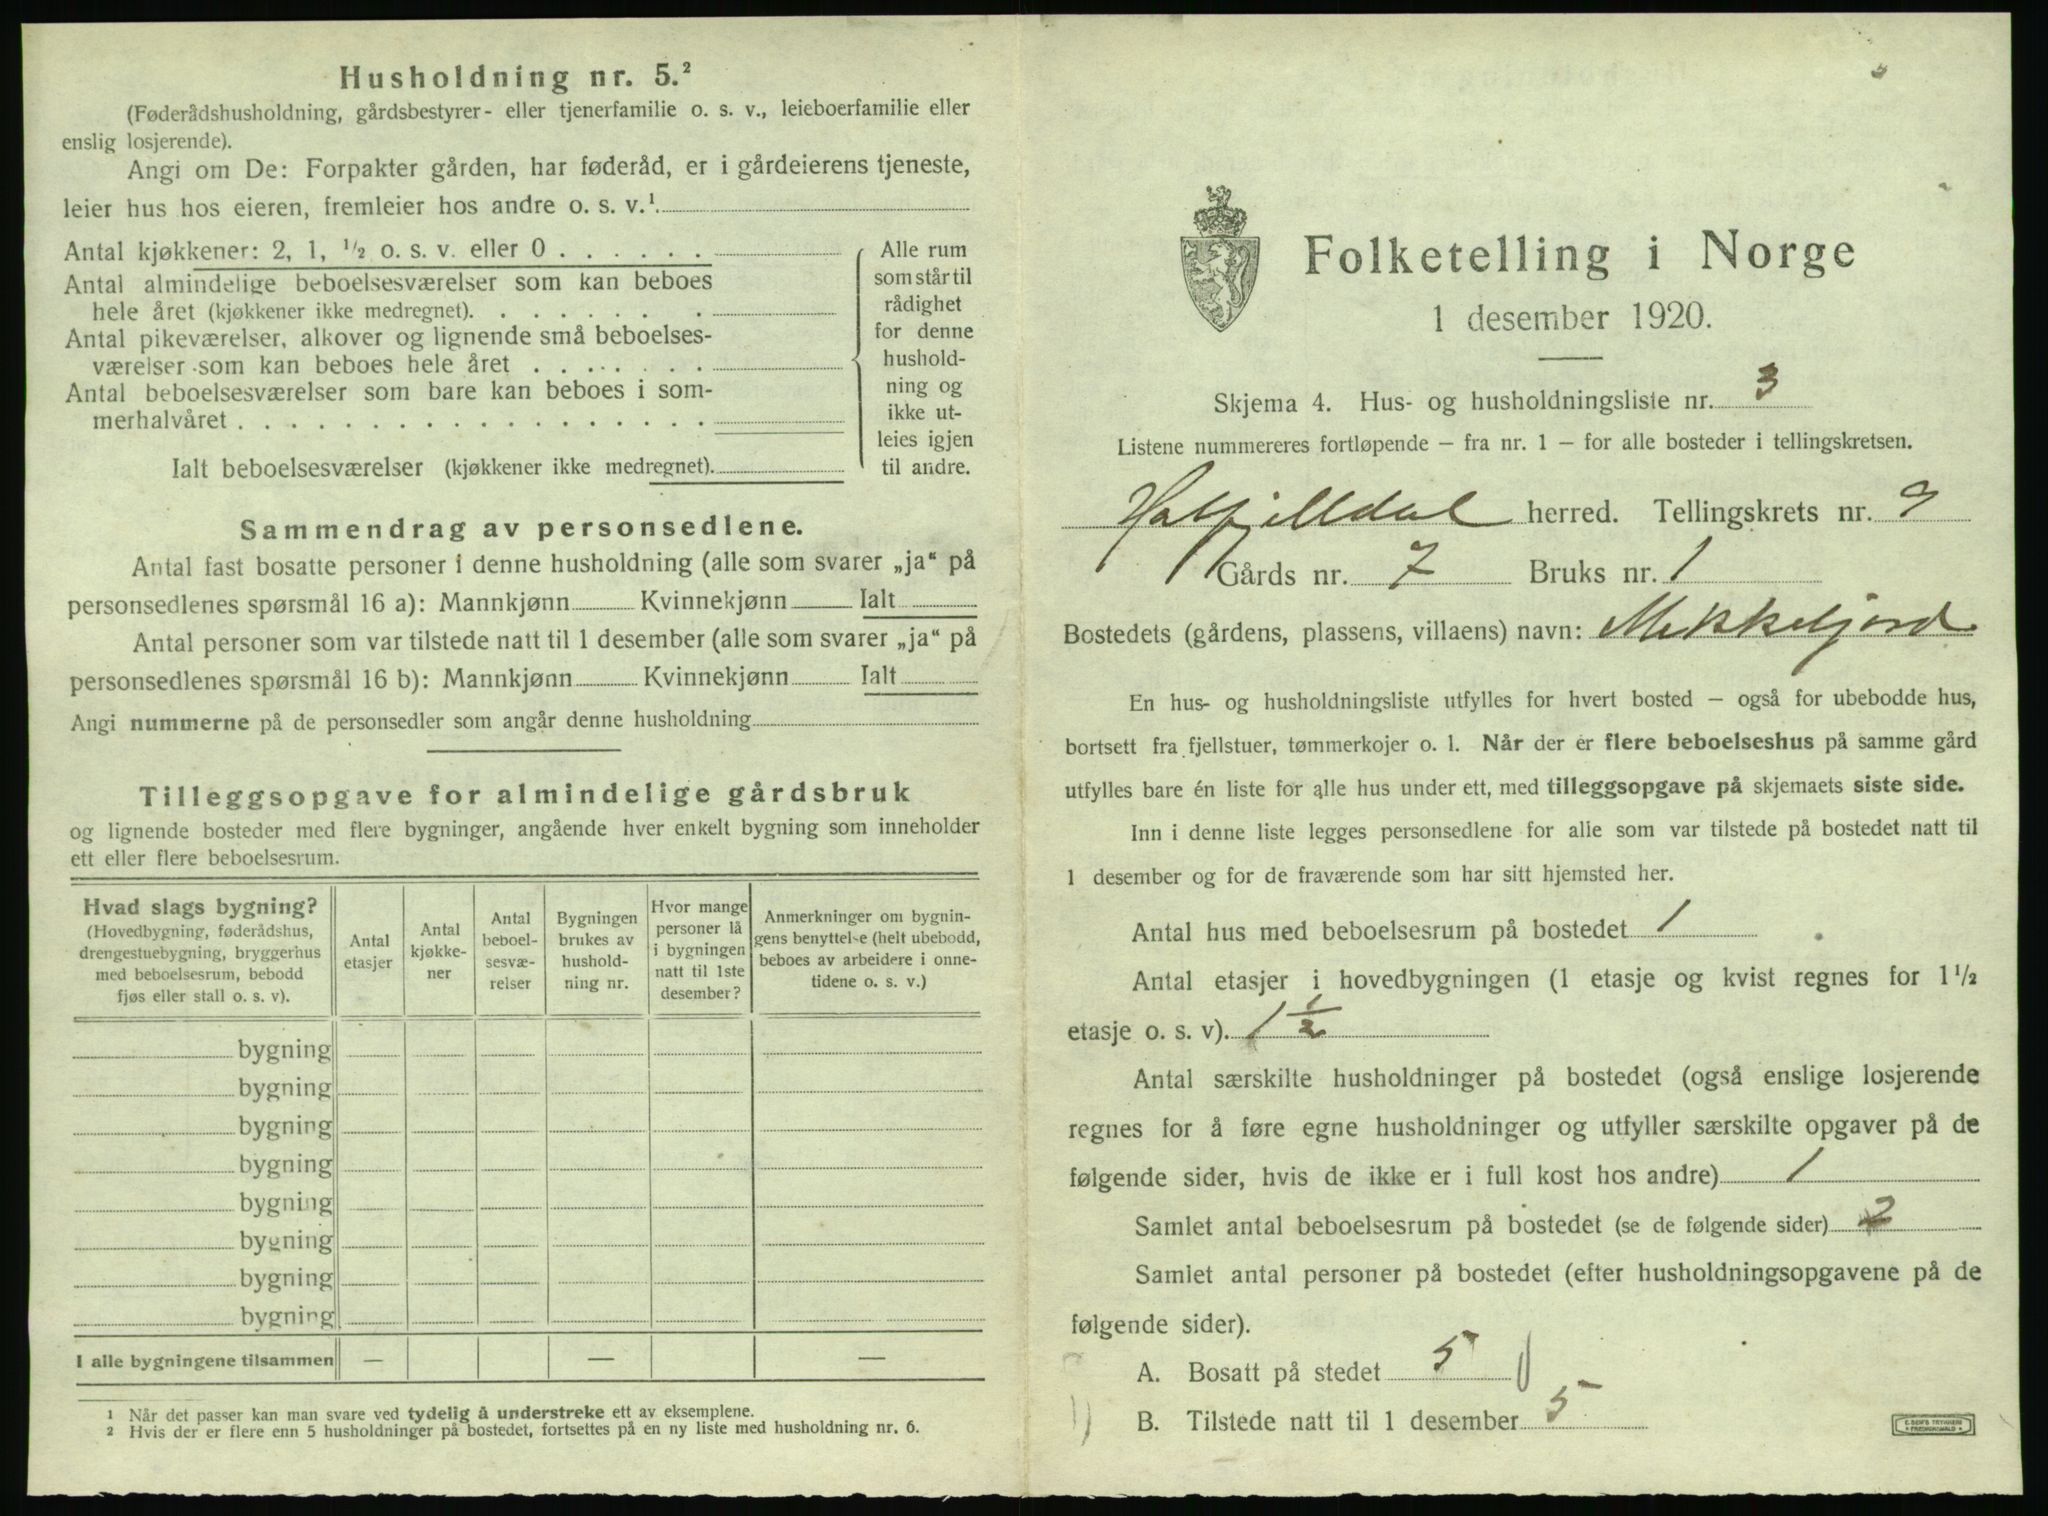 Husholdning nr. 5.²
(Føderådshusholdning, gårdsbestyrer- eller tjenerfamilie o. s. v., leieboerfamilie eller
enslig losjerende).
Angi om De: Forpakter gården, har føderåd, er i gårdeierens tjeneste,
leier hus hos eieren, fremleier hos andre o. s. v.¹
Antal kjøkkener: 2, 1, ½ o. s. v. eller 0 . . . . . .
Antal almindelige beboelsesværelser som kan beboes
hele året (kjøkkener ikke medregnet). . . . . . . .
Antal pikeværelser, alkover og lignende små beboelses-
værelser som kan beboes hele året . . . . . . .
Antal beboelsesværelser som bare kan beboes i som-
merhalvåret . . . . . . . . . . . . . . . . . .
Ialt beboelsesværelser (kjøkkener ikke medregnet).
Alle rum
som står til
rådighet
for denne
hushold-
ning og
ikke ut-
leies igjen
til andre.
Sammendrag av personsedlene.
Antal fast bosatte personer i denne husholdning (alle som svarer „ja“ på
personsedlenes spørsmål 16 a): Mannkjønn Kvinnekjønn Ialt
Antal personer som var tilstede natt til 1 desember (alle som svarer „ja“ på
personsedlenes spørsmål 16 b): Mannkjønn Kvinnekjønn Ialt
Angi nummerne på de personsedler som angår denne husholdning
Tilleggsopgave for almindelige gårdsbruk
og lignende bosteder med flere bygninger, angående hver enkelt bygning som inneholder
ett eller flere beboelsesrum.
Hvad slags bygning?
(Hovedbygning, føderådshus,
drengestuebygning, bryggerhus
med beboelsesrum, bebodd
fjøs eller stall o. s. v).
Antal
etasjer
Antal
kjøkke-
ner
Antal
beboel-
sesvæ-
relser
Bygningen
brukes av
hushold-
ning nr.
Hvor mange
personer lå
i bygningen
natt til 1ste
desember?
Anmerkninger om bygnin-
gens benyttelse (helt ubebodd,
beboes av arbeidere i onne-
tidene o. s. v.)
bygning
bygning
bygning
bygning
bygning
bygning
bygning
bygning
I alle bygningene tilsammen — — —
¹ Når det passer kan man svare ved tydelig å understreke ett av eksemplene.
² Hvis der er flere enn 5 husholdninger på bostedet, fortsettes på en ny liste med husholdning nr. 6.
Folketelling i Norge
1 desember 1920.
Skjema 4. Hus- og husholdningsliste nr. 3
Listene nummereres fortløpende – fra nr. 1 – for alle bosteder i tellingskretsen.
Hatfjelldal herred. Tellingskrets nr. 9
Gårds nr. 7 Bruks nr. 1
Bostedets (gårdens, plassens, villaens) navn: Mikkeljord
En hus- og husholdningsliste utfylles for hvert bosted – også for ubebodde hus,
bortsett fra fjellstuer, tømmerkojer o. l. Når der er flere beboelseshus på samme gård
utfylles bare én liste for alle hus under ett, med tilleggsopgave på skjemaets siste side.
Inn i denne liste legges personsedlene for alle som var tilstede på bostedet natt til
1 desember og for de fraværende som har sitt hjemsted her.
Antal hus med beboelsesrum på bostedet 1
Antal etasjer i hovedbygningen (1 etasje og kvist regnes for 1½
etasje o. s. v). 1 ½
Antal særskilte husholdninger på bostedet (også enslige losjerende
regnes for å føre egne husholdninger og utfyller særskilte opgaver på de
følgende sider, hvis de ikke er i full kost hos andre) 1
Samlet antal beboelsesrum på bostedet (se de følgende sider) 2
Samlet antal personer på bostedet (efter husholdningsopgavene på de
følgende sider).
A. Bosatt på stedet 5
B. Tilstede natt til 1 desember 5